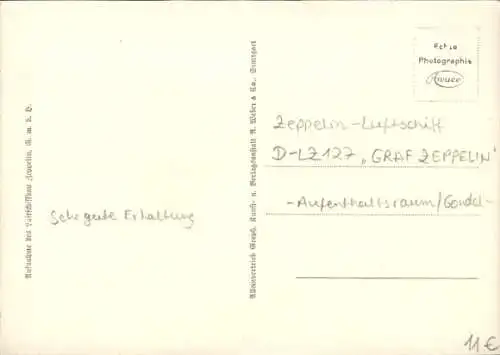 Echte
Photographie
Awuco
Zeppelin-Luftschiff
D-LZ127 „GRAF ZEPPELIN"
-Aufenthaltsraum/Gondel-
Sehr gute Erhaltung
Aufnahme des Luftschiffbau Zeppelin, G. m. b. H.
Alleinvertrieb Graph. Kunst- u. Verlagsanstalt A. Weber & Co., Stuttgart
11€